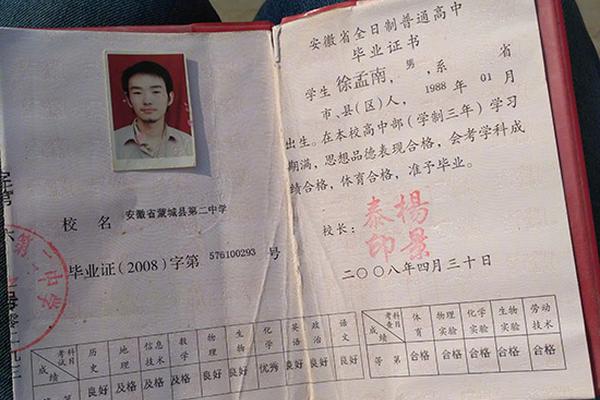 校 名 安徽省蒙城县第二中学
毕业证(2008)字第 576100293 号
考试科目 历史 地理 信息技术 数学 物理 生物 化学 英语 政治 语文
成绩 等第 良好 及格 及格 及格 良好 良好 优秀 良好 良好 良好
第二中学
安徽省全日制普通高中
毕业证书
学生 徐孟南, 男, 系 省
市、县(区)人, 1988 年 01 月
出生。在本校高中部(学制三年)学习
期满, 思想品德表现合格, 会考学科成
绩合格, 体育合格, 准予毕业。
校长: 杨景泰印
二〇〇八年四月三十日
考查科目 体育 物理实验 化学实验 生物实验 劳动技术
成绩 等第 合格 合格 合格 合格 合格